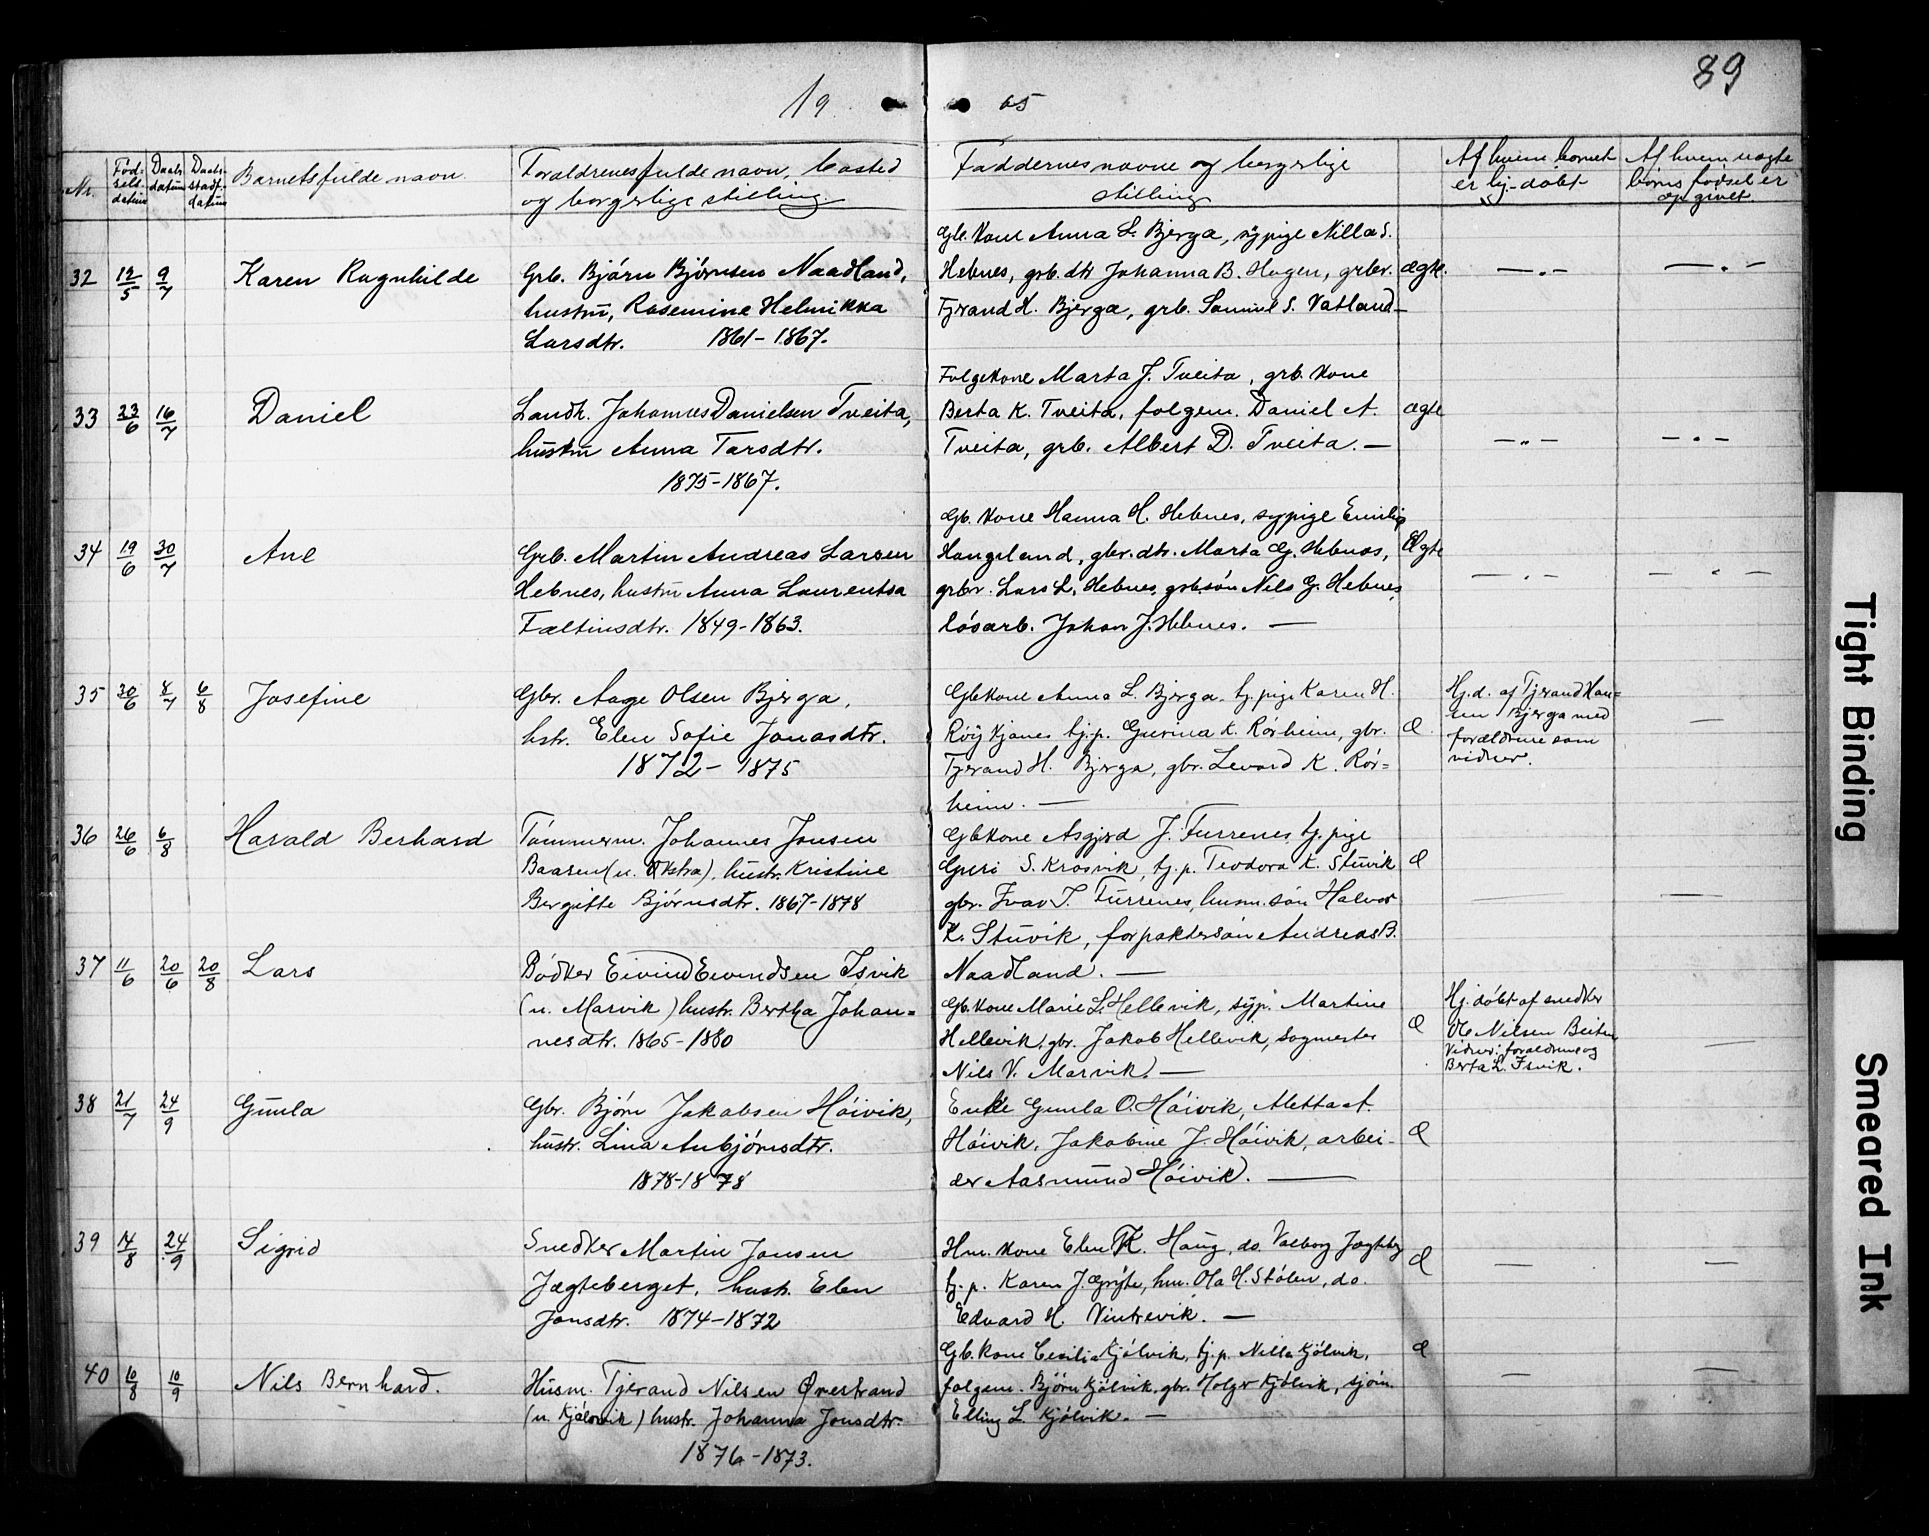 89
19 05
Nr.
Fød-
sels
datum
Daabs
datum
Daabs-
stadf.
datum
Barnets fulde navn.
Foraldrenes fulde navn, bosted
og borgerlige stilling.
Faddernes navne og borgerlige
stilling
Af hvem barnet
er hj-døbt
Af hvem uægte
børns fødsel er
opgivet.
32 12/5 9/7 Karen Ragnhilde
Grb. Bjørn Bjørnsen Naadland,
hustru, Rasemine Helmikka
Larsdtr. 1861-1867.
Gb. Kone Anna L. Bjerga, sypige Nilla S.
Hebnes, grb. dtr Johanna B. Hagen, grbr. ægte. —„— —„—
Tjerand H. Bjerga, grb. Samuel S. Vatland—
33 23/6 16/7 Daniel
Landh. Johannes Danielsen Tveita,
hustru Anna Tarsdtr.
1875-1867.
Folgekone Marta J. Tveita, grb. kone
Berta K. Tveita, folgem. Daniel A. ægte
Tveita, grb. Albert D. Tveita. — —„— —„—
34 19/6 30/7 Ane
Grb. Martin Andreas Larsen
Hebnes, hustru Anna Laurentsa
Fæltinsdtr. 1849-1863.
Gb. Kone Hanna H. Hebnes, sypige Emilie
Haugeland, gbr. dtr. Marta G. Hebnes, Ægte
grbr. Lars L. Hebnes, grb.søn Nils G. Hebnes, —„— —„—
løsarb. Johan J. Hebnes. —
35 30/6 8/7 6/8 Josefine
Gbr. Aage Olsen Bjerga,
hstr. Elen Sofie Jonasdtr.
1872-1875
Gbkone Anna L. Bjerga, tj.pige Karen H.
Røykjanes tj.p. Gurina K. Rørheim, gbr. Æ
Tjerand H. Bjerga, gbr. Levard K. Rør-
heim. —
Hj.d. af Tjerand Han-
sen Bjerga med
forældrene som
vidner.
—
36 26/6 6/8 Harald Berhard
Tømmerm. Johannes Jonsen
Baasen (u. Økstra), hustr. Kristine
Bergitte Bjørnsdtr. 1867-1878
Gbkone Asgjerd J. Furrenes, tj. pige
Guri S. Krosvik, tj.p. Teodora K. Stuvik Æ
gbr. Ivar T. Furrenes, husm. søn Halvor — —
K. Stuvik, forpaktersøn Andreas B.
Naadland. —
37 11/6 20/6 20/8 Lars
Bødker Eivind Eivindsen Isvik
(u. Marvik) hustr. Bertha Johan-
nesdtr. 1865-1880
Gb. kone Marie L. Hellevik, syp. Martine
Hellevik, gbr. Jakob Hellevik, sogmester Æ
Nils V. Marvik. —
Hj. døbt af snedker
Ole Nilsen Beitn
Vidner: forældrene og
Berta L. Isvik.
—
38 21/7 24/9 Gunla
Gbr. Bjørn Jakobsen Høivik,
hustr. Lina Anbjørnsdtr.
1878-1878
Enke Gunla O. Høivik, Metta A.
Høivik, Jakobine J. Høivik, arbei- Æ
der Aasmund Høivik. —
39 14/8 24/9 Sigrid
Snedker Martin Jonsen
Jægteberget, hustr. Elen
Jonsdtr. 1874-1872
Hm. kone Elen K. Haug, do. Valborg Jægtbg
tj.p. Karen J. Grøte, hm. Ola H. Stølen, do. Æ — —
Edvard H. Vintrevik. —
40 10/8 10/9 Nils Bernhard.
Husm. Tjerand Nilsen Ørestrand
(u. Kjølvik) hustr. Johanna Jonsdtr.
1876-1873.
Gb. kone Cecilia Kjølvik, tj.p. Nilla Kjølvik, Æ
folgem. Bjørn Kjølvik, gbr. Holger Kjølvik, sjøm. — —
Elling L. Kjølvik. —
Tight Binding
Smeared Ink